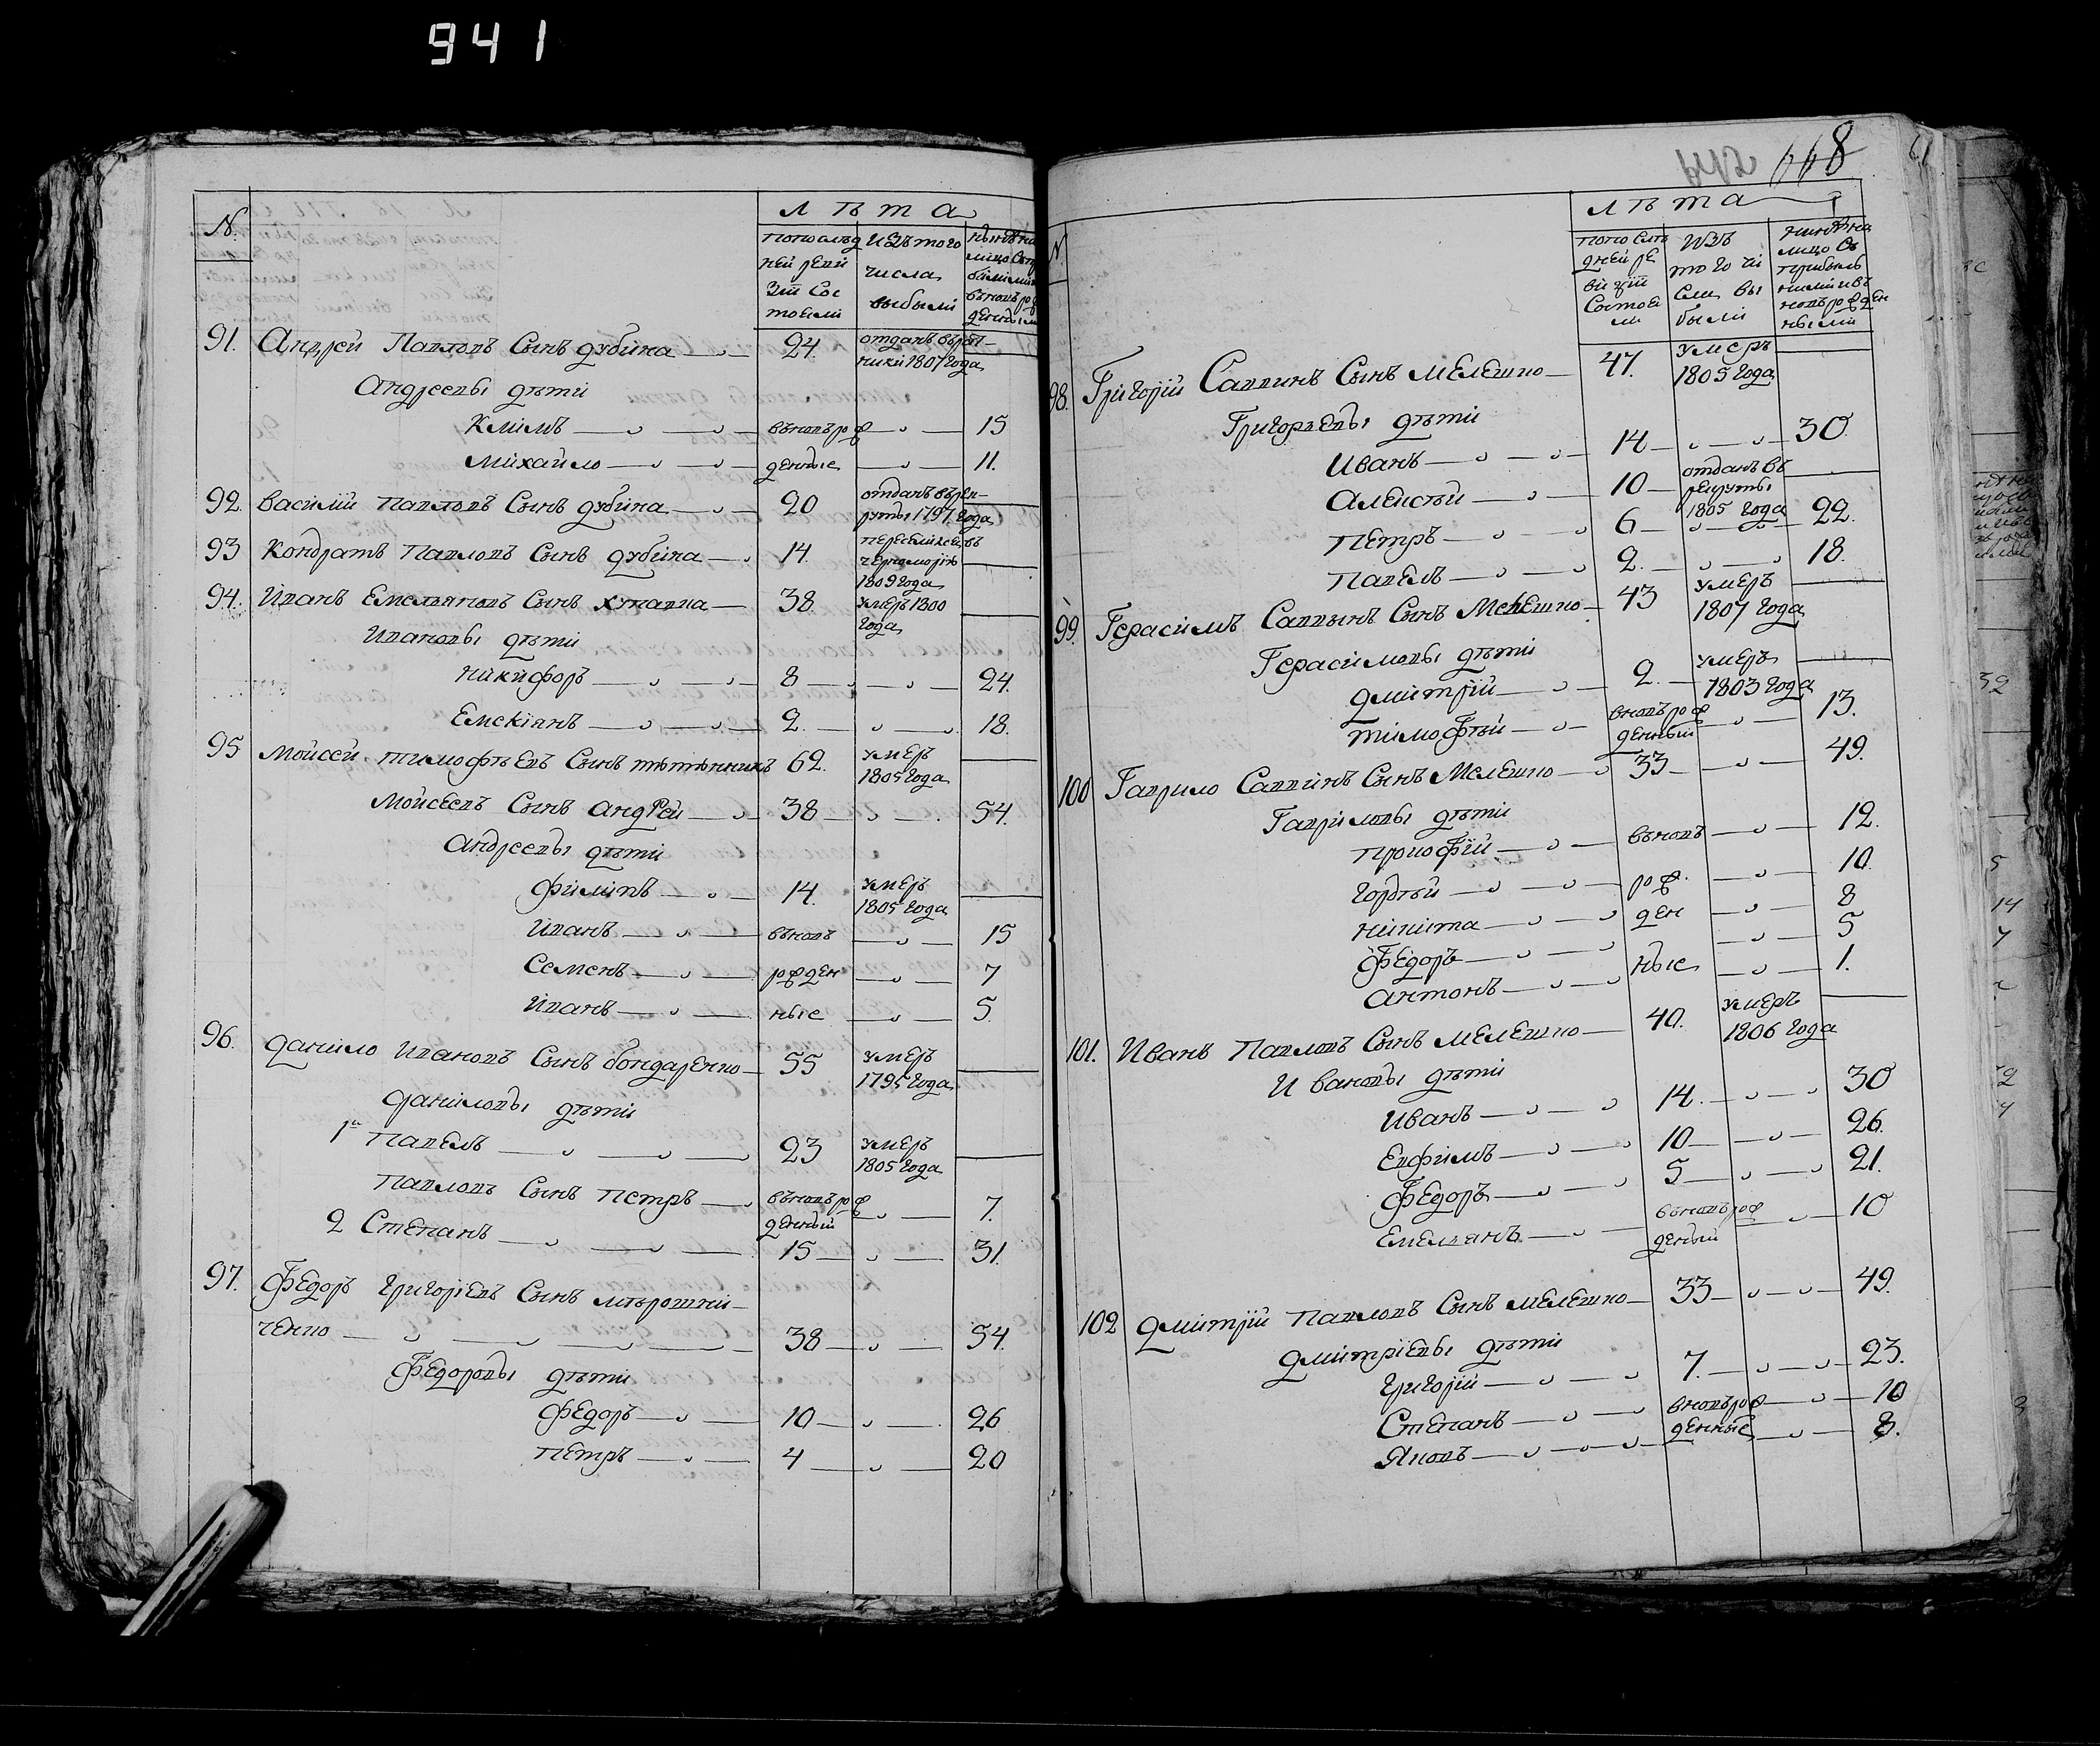 941
N.
Лѣта
попослѣд
ней реви
зіи сос
тояли
изъ того
числа
выбыли
нынѣ на
лицо
вновь рож
денными
91. Андрей Павловъ сынъ дубина 24. отданъ въ рат-
ники 1807 года
Андреевы дѣти
Климъ вновь рож 15
Михайло денные 11.
92. василій Павловъ Сынъ дубина 20 отданъ въ рек-
руты 1797 года
93 Кондратъ Павловъ Сынъ дубина 14. переселился въ
черноморію
1809 года
94. Иванъ Емельяновъ Сынъ 38. умеръ 1800
года
Ивановы дѣти
Никифоръ 8 24.
Емелянъ 2. 18.
95 Мойсей тимофѣевъ Сынъ 62. умеръ
1805 года
Мойсеевъ Сынъ андрей 38 54.
Андреевы дѣти
филипъ 14. умеръ
1805 года
Иванъ вновь 15
Семенъ рожден 7
Иванъ ные 5.
96. данило Ивановъ Сынъ бондаренко 55 умеръ
1795 года
даниловы дѣти
1й Павелъ 23 умеръ
1805 года
Павловъ Сынъ Петръ вновь рож
денный 7.
2 Степанъ 15 31.
97. Федоръ григоріевъ Сынъ мѣрошни-
ченко 38 54.
Федоровы дѣти
Федоръ 10 26
Петръ 4 20
668
N.
Лѣта
попослѣ
дней ре
визіи
состоя
ли
изъ
того чи
сла вы
были
нынѣ на
лицо съ
прибыль
ними и в
новь рожден
ными
98. Григорій Саввинъ Сынъ Мелешко 47. умеръ
1805 года
Григорьевы дѣти
Иванъ 14 30.
Алексѣй 10 отданъ въ
рекруты
1805 года
Петръ 6 22.
Павелъ 2. 18.
99. Герасимъ Саввинъ Сынъ Мелешко 43 умеръ
1807 года
Герасимовы дѣти
дмитрій 2. умеръ
1803 года
тимофѣй вновь рож
денный 13.
100 Гаврило Саввинъ Сынъ Мелешко 33 49.
Гавриловы дѣти
Прокофій вновь 12.
Гордѣй рож 10.
Никита ден 8
Федоръ 5
антонъ ные 1.
101. Иванъ Павловъ Сынъ Мелешко 40. умеръ
1806 года
Ивановы дѣти
Иванъ 14. 30
Евфимъ 10 26.
Федоръ 5 21.
Емелянъ вновь рож
денный 10
102 дмитрій Павловъ Сынъ Мелешко 33 49.
дмитріевы дѣти
григорій 7. 23.
Степанъ вновь рож 10
Яковъ денные 8.